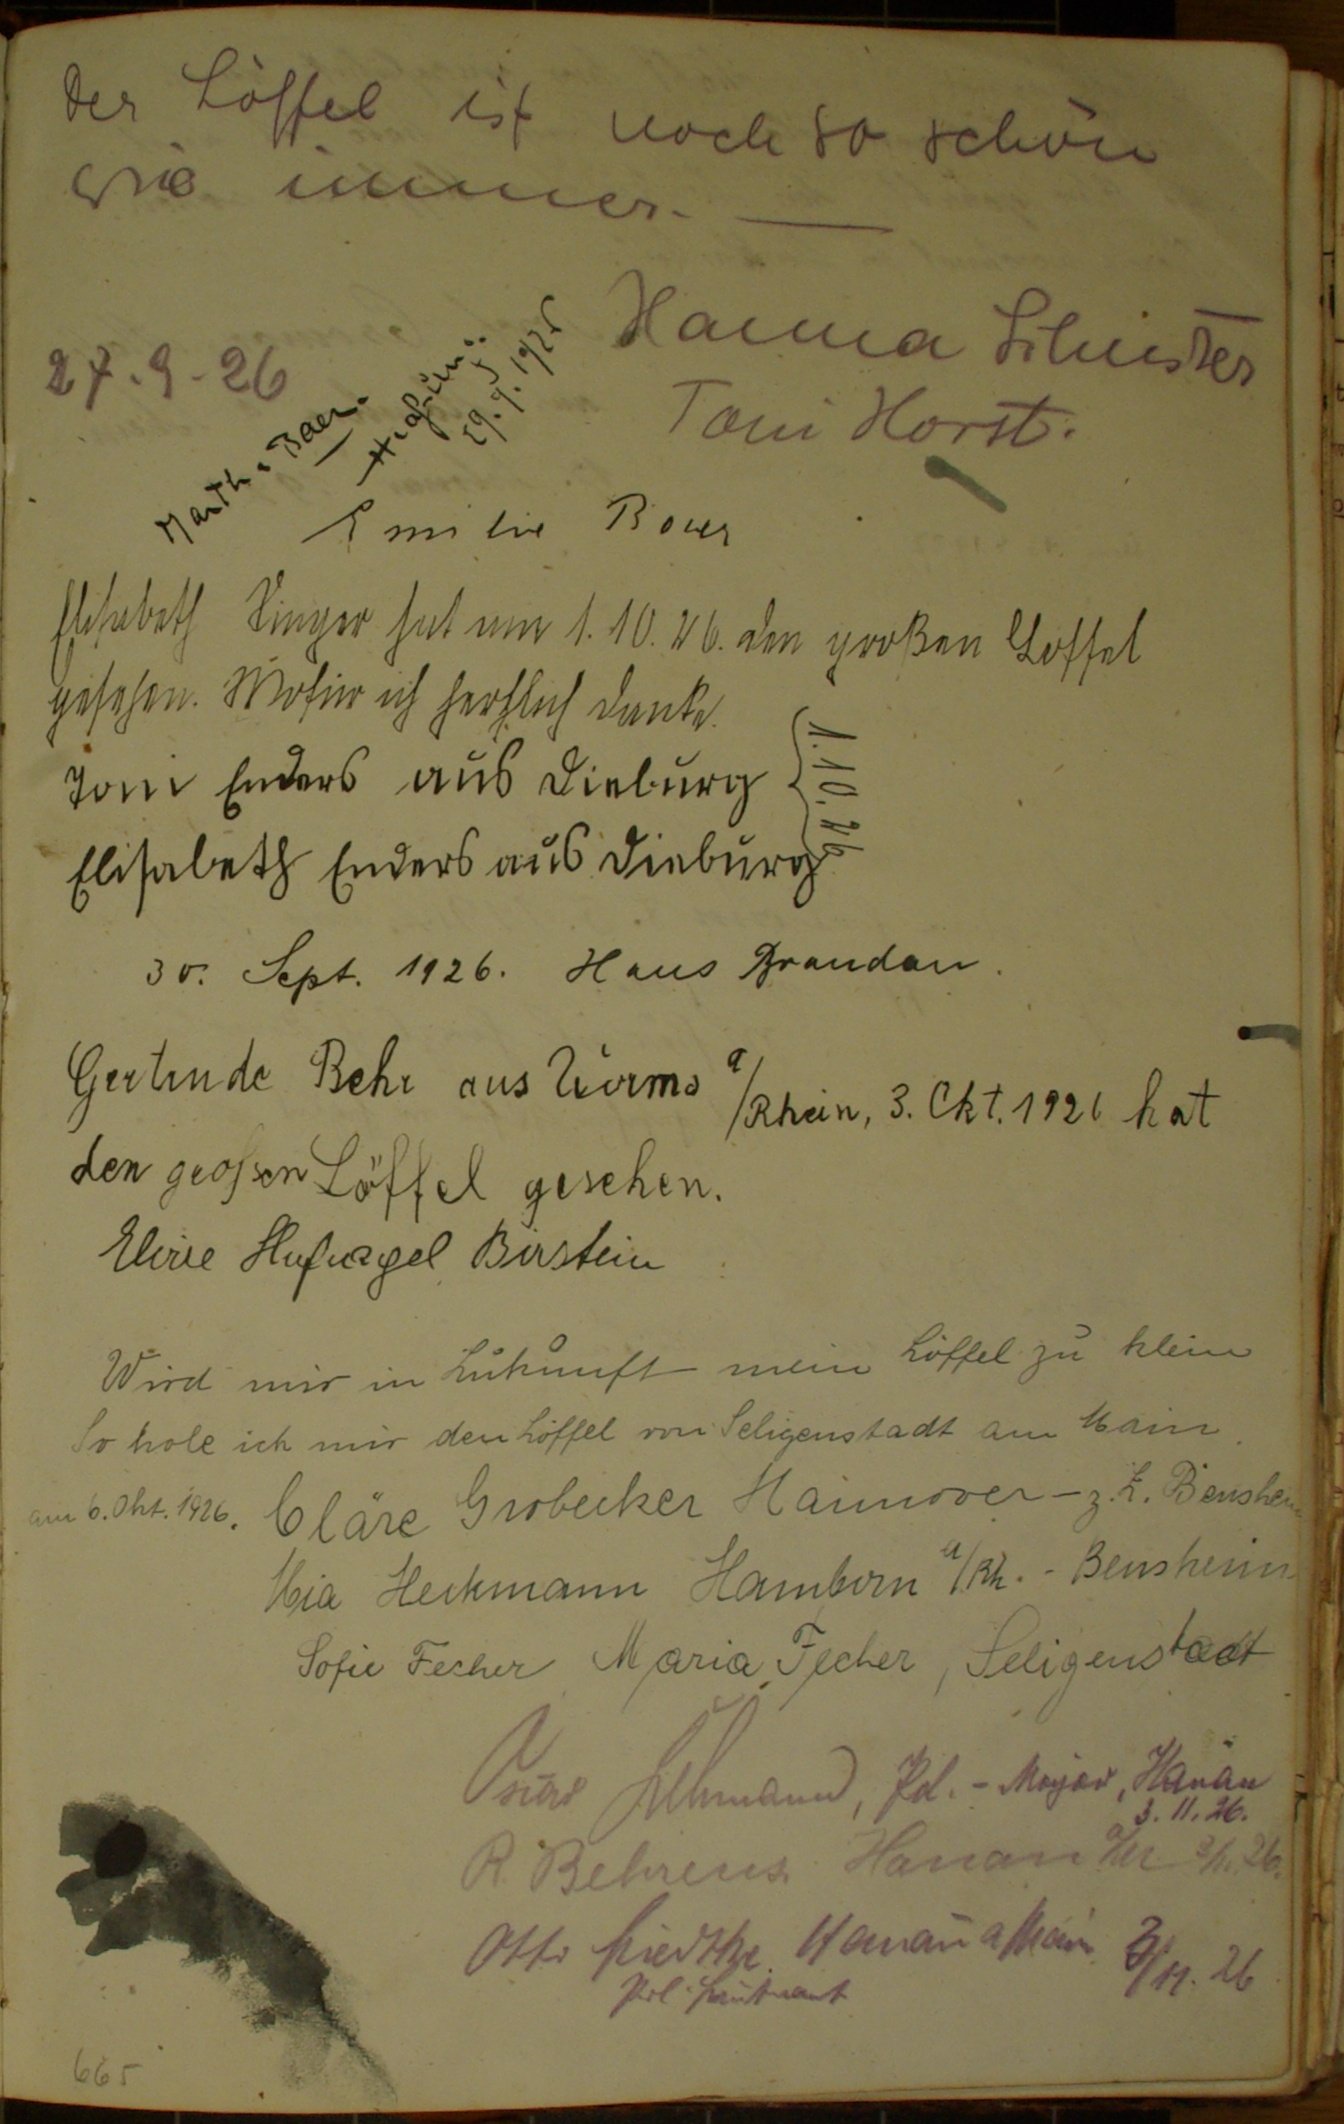 Der Löffel ist noch so schön
wie immer. —
Hanna
27.9.26
Toni Horst.
Martha Baer.
29.9.1926
Emilie Bauer
Elisabeth Singer hat am 1.10.26. den großen Löffel
gesehen. Wofür ich herzlich danke.
Toni Enders aus Dieburg
Elisabeth Enders aus Dieburg
1.10.26
30. Sept. 1926. Hans Brandau.
Gertrude Behr aus Worms a/Rhein, 3. Okt. 1926 hat
den großen Löffel gesehen.
Hufnagel Birstein
Wird mir in Zukunft mein Löffel zu klein
So hole ich mir den Löffel von Seligenstadt am Main.
am 6. Okt. 1926. Cläre Grobecker Hannover - z. Z. Bensheim
Mia Heckmann Hamborn a/Rh. - Bensheim
Sofie Fecher Maria Fecher, Seligenstadt
Pol. - Major, Hanau
3.11.26.
R. Behrens. Hanau a/M 3/11.26.
Otto Hanau a Main 3/11.26
Pol. Leutnant
665